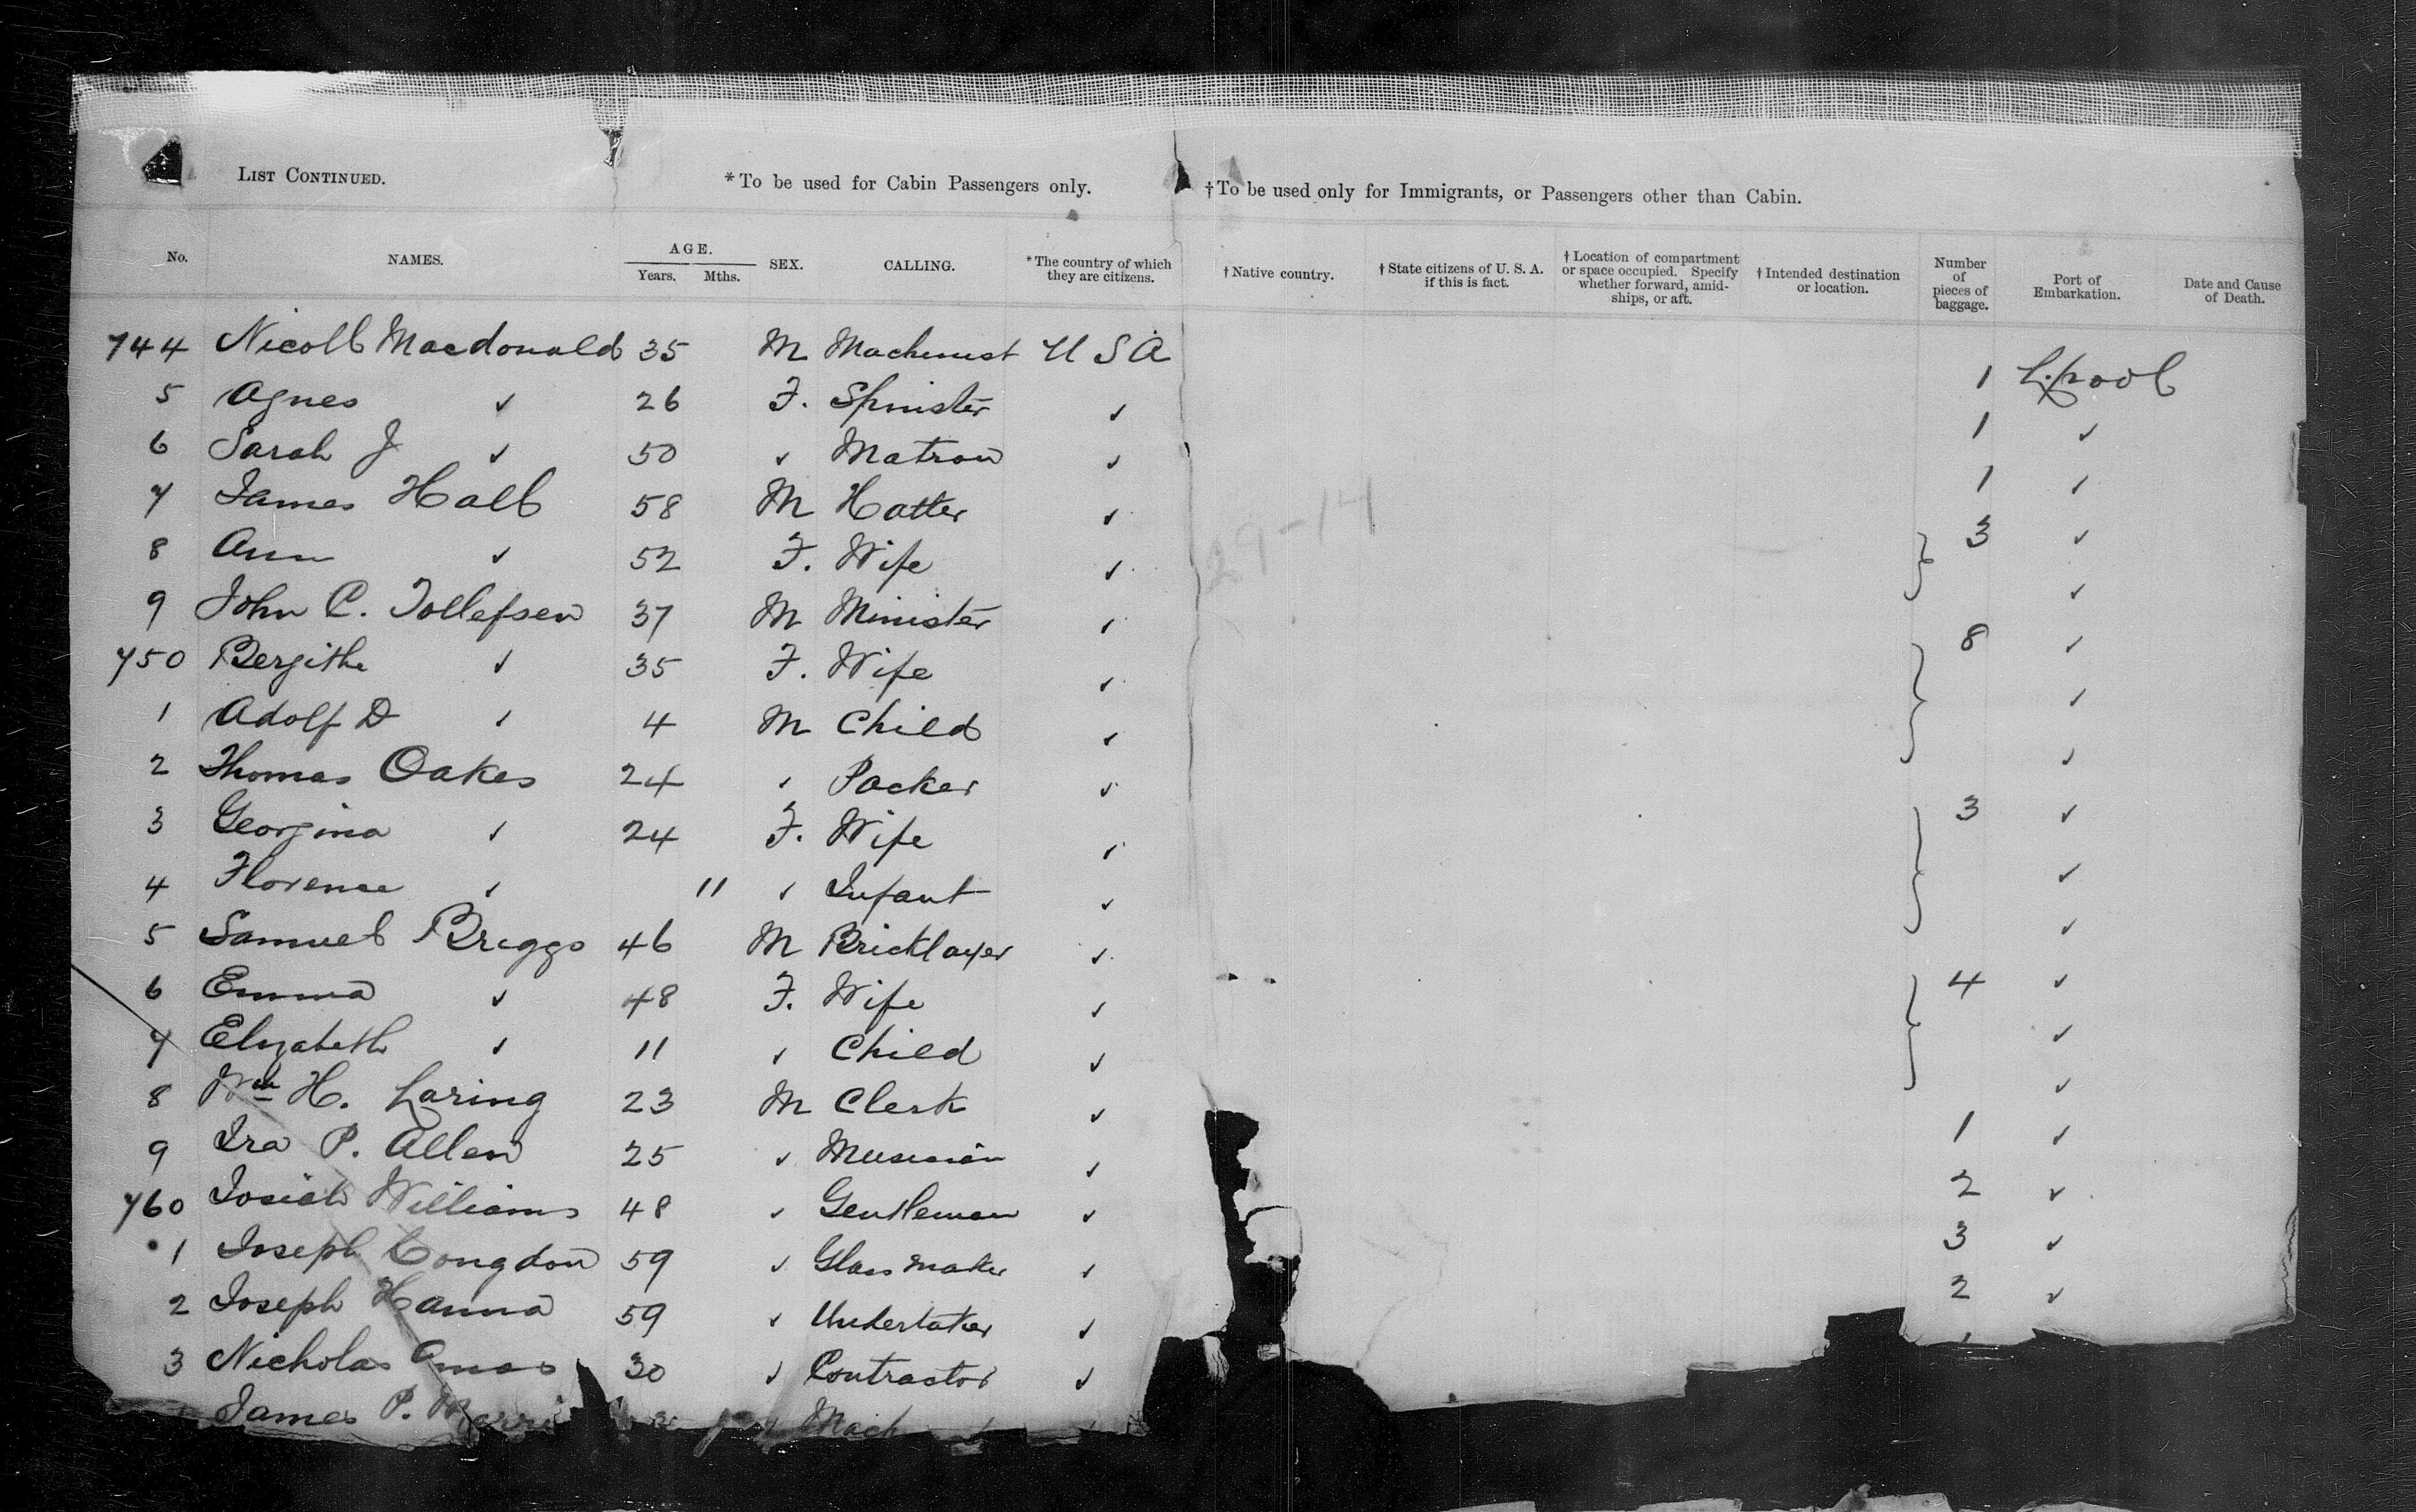 LIST CONTINUED. *To be used for Cabin Passengers only. †To be used only for Immigrants, or Passengers other than Cabin.
No. NAMES. AGE. Years. Mths. SEX. CALLING. *The country of which they are citizens. †Native country. †State citizens of U. S. A. if this is fact. †Location of compartment or space occupied. Specify whether forward, amidships, or aft. †Intended destination or location. Number of pieces of baggage. Port of Embarkation. Date and Cause of Death.
744 Nicoll Macdonald 35 M Machinist U S A 1 L.pool
5 Agnes ✓ 26 F. Spinister ✓ 1 ✓
6 Sarah J ✓ 50 ✓ Matron ✓ 1 ✓
7 James Hall 58 M Hatter ✓ 3 ✓
29-14
8 Ann ✓ 52 F. Wife ✓ ✓
9 John C. Tollefsen 37 M Minister ✓ 8 ✓
750 Bergithe ✓ 35 F. Wife ✓ ✓
1 Adolf D ✓ 4 M Child ✓ ✓
2 Thomas Oakes 24 ✓ Packer ✓ 3 ✓
3 Georgina ✓ 24 F. Wife ✓ ✓
4 Florence ✓ 11 ✓ Infant ✓ ✓
5 Samuel Briggs 46 M Bricklayer ✓ 4 ✓
6 Emma ✓ 48 F. Wife ✓ ✓
7 Elizabeth ✓ 11 ✓ Child ✓ ✓
8 Wm H. Laring 23 M Clerk ✓ 1 ✓
9 Ira P. Allen 25 ✓ Musician ✓ 2 ✓
760 Josiah Williams 48 ✓ Gentleman ✓ 3 ✓
1 Joseph Congdon 59 ✓ Glass maker ✓ 2 ✓
2 Joseph Hanna 59 ✓ Undertaker ✓
3 Nicholas Amas 30 ✓ Contractor ✓
James P.